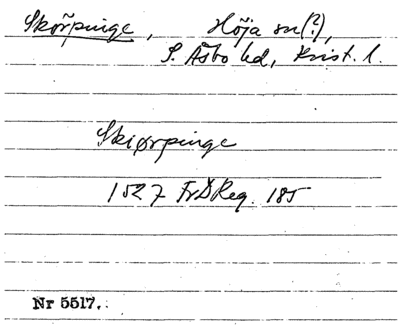 Skörpinge, Höja sn(?),
S. Åsbo hd, Krist. l.
Skiørpinge
1527 FrdReg. 185
Nr 5517.